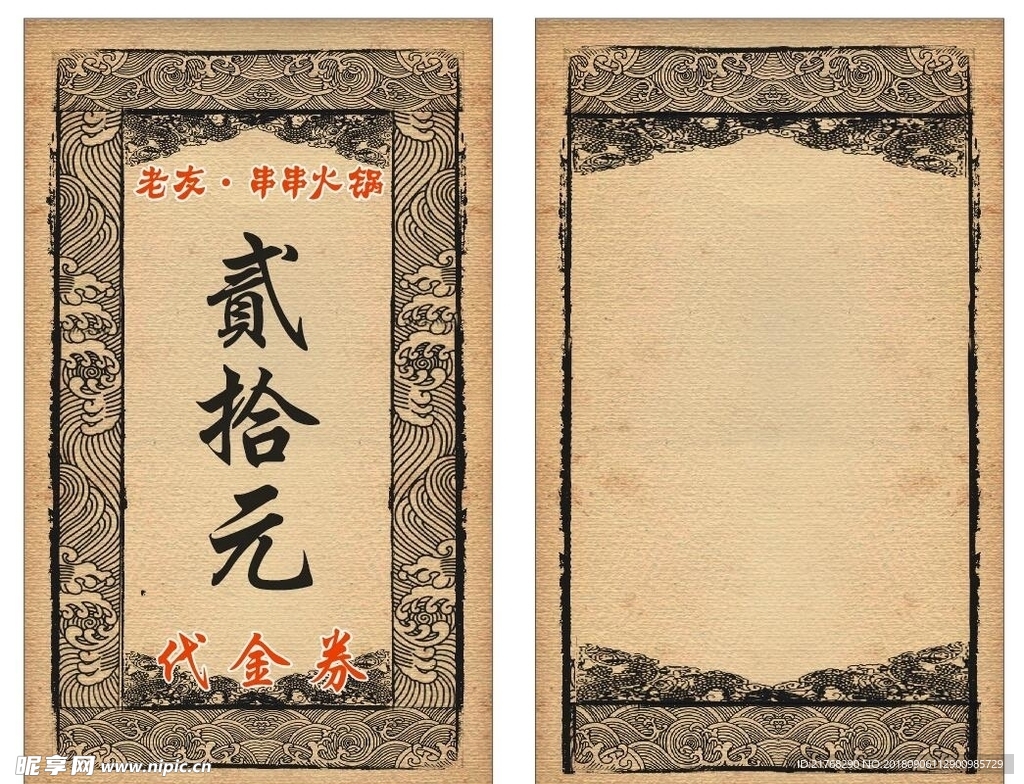 老友·串串火锅
貳拾元
代金券
昵享网 www.nipic.cn
ID:21768290 NO:20180906112900985729